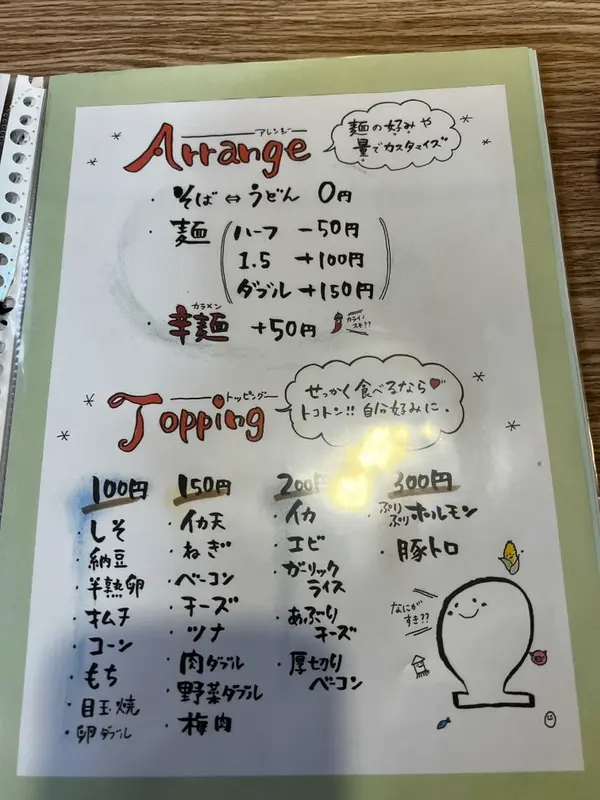 アレンジ
Arrange
麺の好みや
量でカスタマイズ
・そば⇔うどん 0円
・麺 (ハーフ -50円
1.5 +100円
ダブル +150円)
カラメン
・辛麺 +50円
カライ
スキ??
トッピング
Topping
せっかく食べるなら♥
トコトン!!自分好みに。
100円
・しそ
・納豆
・半熟卵
・キムチ
・コーン
・もち
・目玉焼
・卵ダブル
150円
・イカ天
・ねぎ
・ベーコン
・チーズ
・ツナ
・肉ダブル
・野菜ダブル
・梅肉
200円
・イカ
・エビ
・ガーリック
ライス
・あぶり
チーズ
・厚切り
ベーコン
300円
・ぷりぷりホルモン
・豚トロ
なにが
すき??